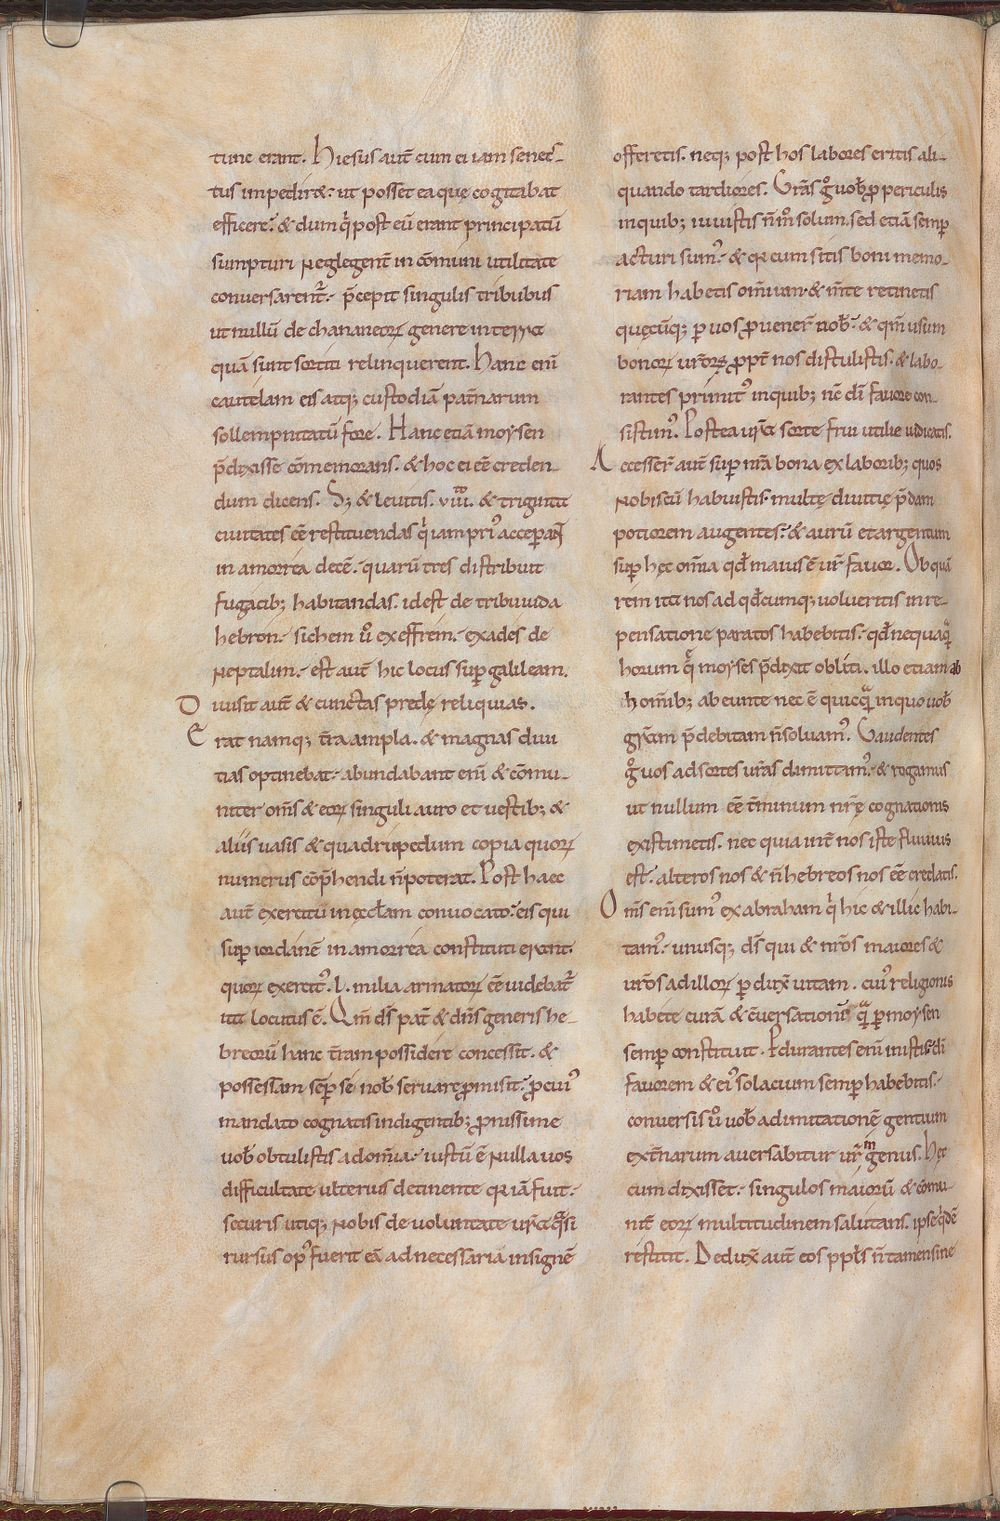 tunc erant. Hiesus aut̄ cum ei iam senec-
tus impedir&: ut posset ea quę cogitabat
efficere: & dum q̇ post eū erant principatū
sumpturi neglegent̄ in cōmuni utilitate
conversarent᷑: p̄cepit singulis tribubus
ut nullū de chananeoꝝ genere in terra
quā sunt sortiti relinquerent. Hanc enī
cautelam eis atq; custodiā pat̄narum
sollempnitatū fore. Hanc etiā moysen
p̄dixisse cōmemorans. & hoc ei eē creden-
dum dicens. S; & levitis. viii. & triginta
civitates eē restituendas q̇ iam pri᷒ acceperant
in amorréa decē. quarū tres distribuit
fugacib; habitandas. id est de tribu iuda
hebrón. sichem ů ex effrém. ex ades de
neptalim. est aut̄ hic locus sup̱ galileam.
Divisit aut̄ & cunctas predę reliquias.
Erat namq; t̄ra ampla. & magnas divi
tias optinebat. abundabant enī & cōmu-
niter om̄s & eoꝝ singuli auro et vestib; &
aliis vasis & quadrúpedum copia quoꝝ
numerus cōp̄hendi n̄ poterat. Post haec
aut̄ exercitū in ęccl̄am convocato: eis qui
sup̱ iordánē in amorréa constituti erant.
quoꝝ exercit᷒. L. milia armatoꝝ eē videbat᷑
ita locutus ē. Qm̄ d̄s pat̄ & dn̄s generis he-
breorū hanc t̄ram possidére concessit. &
possessam sēp̱ se nob̄ servare ꝓmisit: ꝓ cui᷒
mandato cognatis indigentib; ꝓnissime
vob̄ obtulistis ad om̄ia. iustū ē nulla vos
difficultate ulterius detinente qꝛ iā fuit.
securis utiq; nobis de voluntate vr̄a quasi
rursus op᷒ fuerit eā ad necessaria insignē
offeretis. neq; post hos labores eritis ali-
quando tardiores. Grās g̊ vob̄ ꝓ periculis
in quib; iuvistis n̄ m̊ solum. sed etiā semp̱
acturi sum᷒. & qꝛ cum sitis boni memo-
riam habetis om̄ium. & in m̄te retinetis
quęcūq; p̱ vos ꝓvener̄ nob̄: & qm̄ usum
bonoꝝ vr̄oꝝ ꝓpt̄ nos distulistis. & labo-
rantes primit᷒ in quib; nc̄ dī favore con-
sistim᷒. Postea vr̄a sorte frui utile iudicatis.
Accesser̄ aut̄ sup̱ nr̄a bona ex laborib; quos
nobiscū habuistis. multę divitię p̄dam
potiorem augentes: & aurū et argentum
sup̱ hęc om̄ia qd̄ maius ē vr̄ favor. Ob quā
rem ita nos ad qd̄cumq; volueritis in re-
pensatione paratos habebitis. qd̄ nequaq̄
horum q̄ moyses p̄dixit obliti. illo etiam ab
hom̄ib; abeunte nec ē quicq̄ in quo vob̄
grām p̄debitam n̄ solvam᷒. Gaudentes
g̊ vos ad sortes vr̄as dimittam᷒. & rogamus
ut nullum eē t̄minum nr̄ę cognationis
existimetis. nec quia int̄ nos iste fluvius
est: alteros nos & n̄ hebreos nos eē credatis.
Om̄s enī sum᷒ ex abraham q̇ hic & illic habi-
tam᷒. unusq; d̄s qui & nr̄os maiores &
vr̄os ad illoꝝ p̱duxit vitam. cui᷒ religionis
habéte curā & c̄versationis quā p̱ moysen
semp̱ constituit. Pdurantes enī in istis. dī
favorem & ei᷒ solacium semp̱ habebitis.
conversis ů vob̄ ad imitationē gentium
ext̄narum aversabitur vr̄m genus. Hęc
cum dixisset: singulos maiorū & cōmu-
nit̄ eoꝝ multitudinem salutans. ipse q̇dē
restitit. Deduxit aut̄ eos ppl̄s n̄ tamen sine